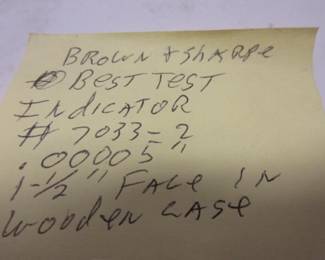 BROWN & SHARPE
BEST TEST
INDICATOR
# 7033-2
.00005"
1-1/2" FACE IN
WOODEN CASE